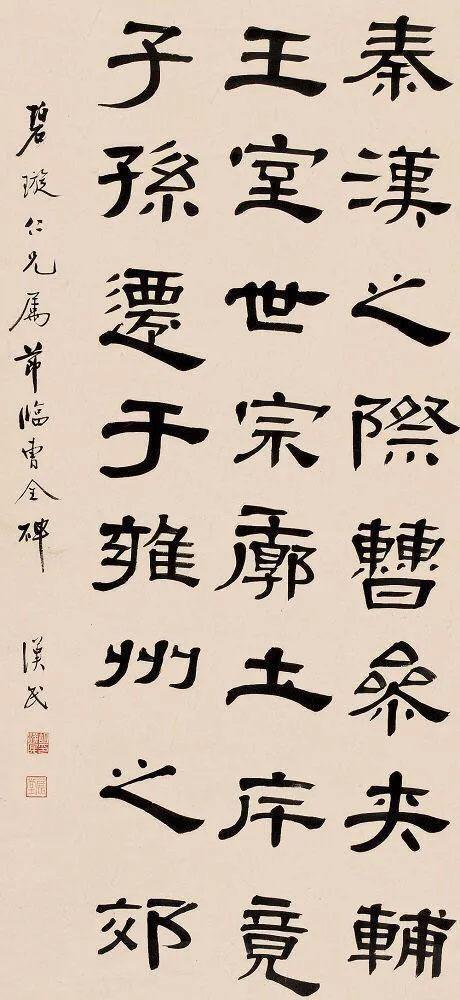 秦漢之際曹參夾輔
王室世宗廓土斥竟
子孫遷于雍州之郊
碧璇仁兄属 節臨曹全碑 漢民